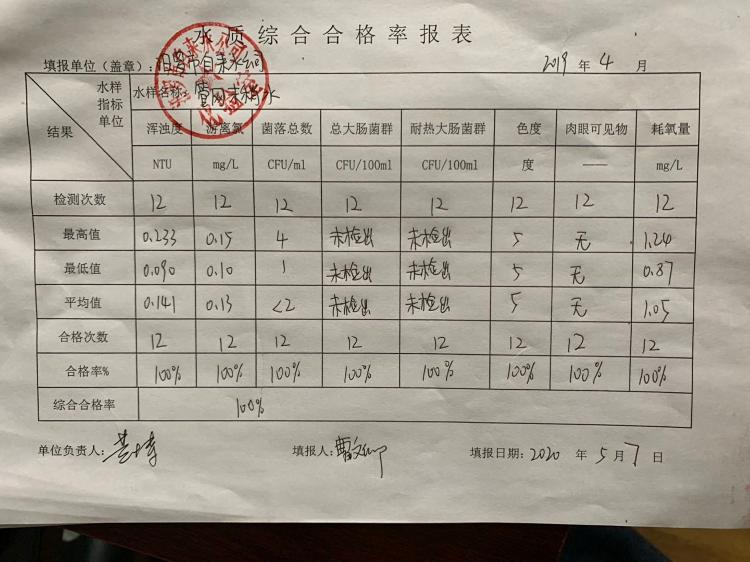 水质综合合格率报表
填报单位（盖章）：汨罗市自来水公司 2019 年 4 月
水样 指标 单位 结果 水样名称：管网末梢水
浑浊度 游离氯 菌落总数 总大肠菌群 耐热大肠菌群 色度 肉眼可见物 耗氧量
NTU mg/L CFU/ml CFU/100ml CFU/100ml 度 —— mg/L
检测次数 12 12 12 12 12 12 12 12
最高值 0.233 0.15 4 未检出 未检出 5 无 1.24
最低值 0.090 0.10 1 未检出 未检出 5 无 0.87
平均值 0.141 0.13 <2 未检出 未检出 5 无 1.05
合格次数 12 12 12 12 12 12 12 12
合格率% 100% 100% 100% 100% 100% 100% 100% 100%
综合合格率 100%
单位负责人： 填报人：曹 填报日期：2020 年 5 月 7 日